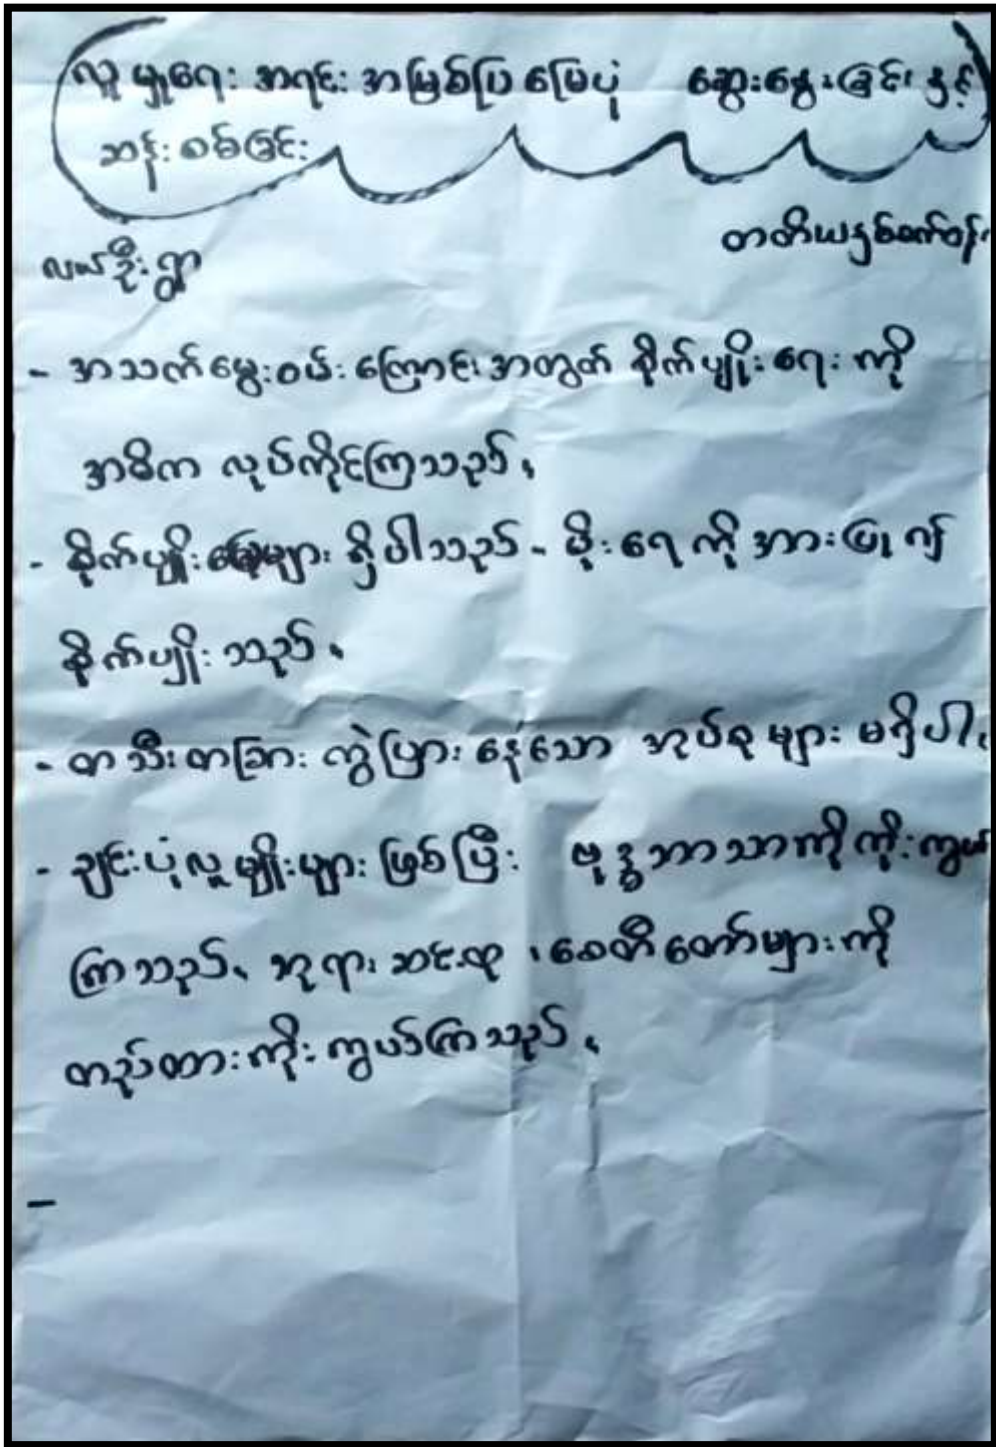 လူမှုရေး အရင်းအမြစ်ပြ မြေပုံ ဆွေးနွေးခြင်းနှင့်
ဆန်းစစ်ခြင်း
တတိယနှစ်ဝက်ဝန်း
လယ်ဦးရွာ
- အသက်မွေးဝမ်းကြောင်းအတွက် စိုက်ပျိုးရေးကို
အဓိက လုပ်ကိုင်ကြသည်၊
- စိုက်ပျိုးမြေများ ရှိပါသည် - မိုးရေကို အားပြု၍
စိုက်ပျိုးသည်၊
- တသီးတခြား ကွဲပြားနေသော အုပ်စုများ မရှိပါ၊
- ချင်းပုံလူမျိုးများ ဖြစ်ပြီး ဗုဒ္ဓဘာသာကိုကိုးကွယ်
ကြသည်၊ ဘုရားဆင်းထု၊ စေတီတော်များကို
တည်ထားကိုးကွယ်ကြသည်၊
-